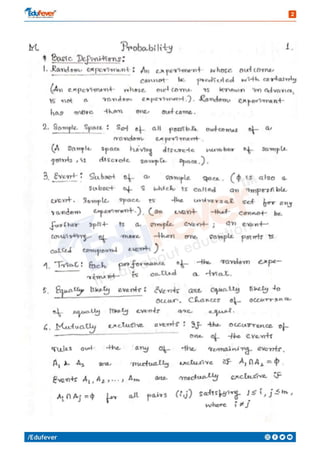 Edufever
2
M.
Probability
1.
Basic Definitions:
1. Random experiment: An experiment whose outcome
cannot be predicted with certainty
(An experiment whose outcome is known in advance,
is not a random experiment.). Random experiment
has more than one outcome.
2. Sample Space: Set of all possible outcomes of a
random experiment.
(A sample space having discrete number of sample
points, is discrete sample space.).
3. Event: Subset of a sample space. (φ is also a
subset of S which is called an impossible
event. Sample space is the universal set for any
random experiment.). (an event that cannot be
further split is a simple event; an event
consisting of more than one sample points is
called compound event.)
4. Trial: Each performance of the random expe-
riment is called a trial.
5. Equally likely events: Events are equally likely to
occur. Chances of occurrence
of equally likely events are equal.
6. Mutually exclusive events: If the occurrence of
one of the events
rules out the any of the remaining events.
A₁ & A₂ are mutually exclusive if A₁∩A₂ = φ.
Events A₁, A₂, ..., Am are mutually exclusive if
Ai∩Aj = φ for all pairs (i,j) satisfying 1≤i, j≤m,
where i≠j
/Edufever